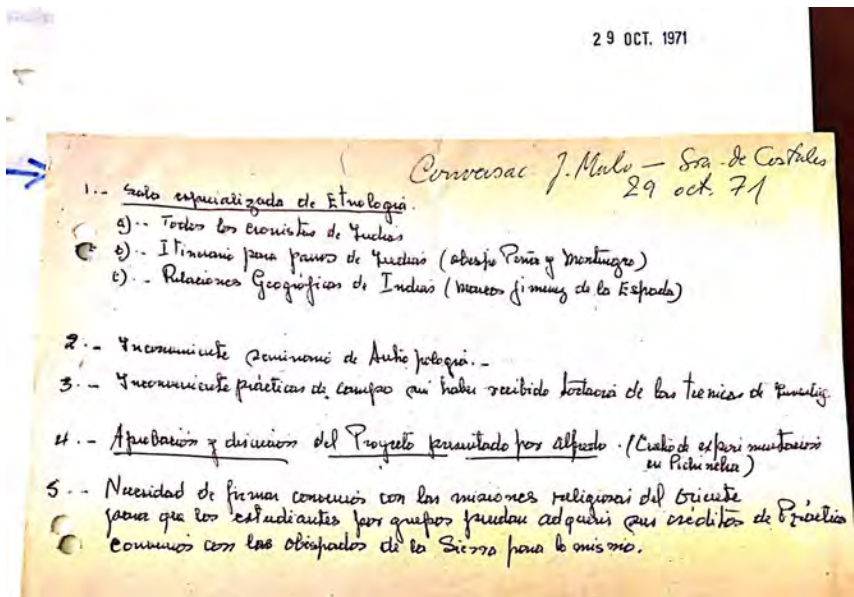 29 OCT. 1971
Conversac J. Malo — Sra. de Costales
29 oct. 71
1.- Sala especializada de Etnología.
a).- Todos los cronistas de Indias
b).- Itinerario para paros de Indias (obispo Peña y Montenegro)
c).- Relaciones Geográficas de Indias (Marcos Jimenez de la Espada)
2.- Inconveniente seminario de Antropología.-
3.- Inconveniente prácticas de campo sin haber recibido de las tecnicas de Investig.
4.- Aprobación y discusión del Proyecto presentado por Alfredo. (Centro de experimentación
en Pichincha)
5.- Necesidad de firmar convenios con las misiones religiosas del Oriente
para que los estudiantes por grupos puedan adquirir sus créditos de Práctica
convenios con los obispados de la Sierra para lo mismo.